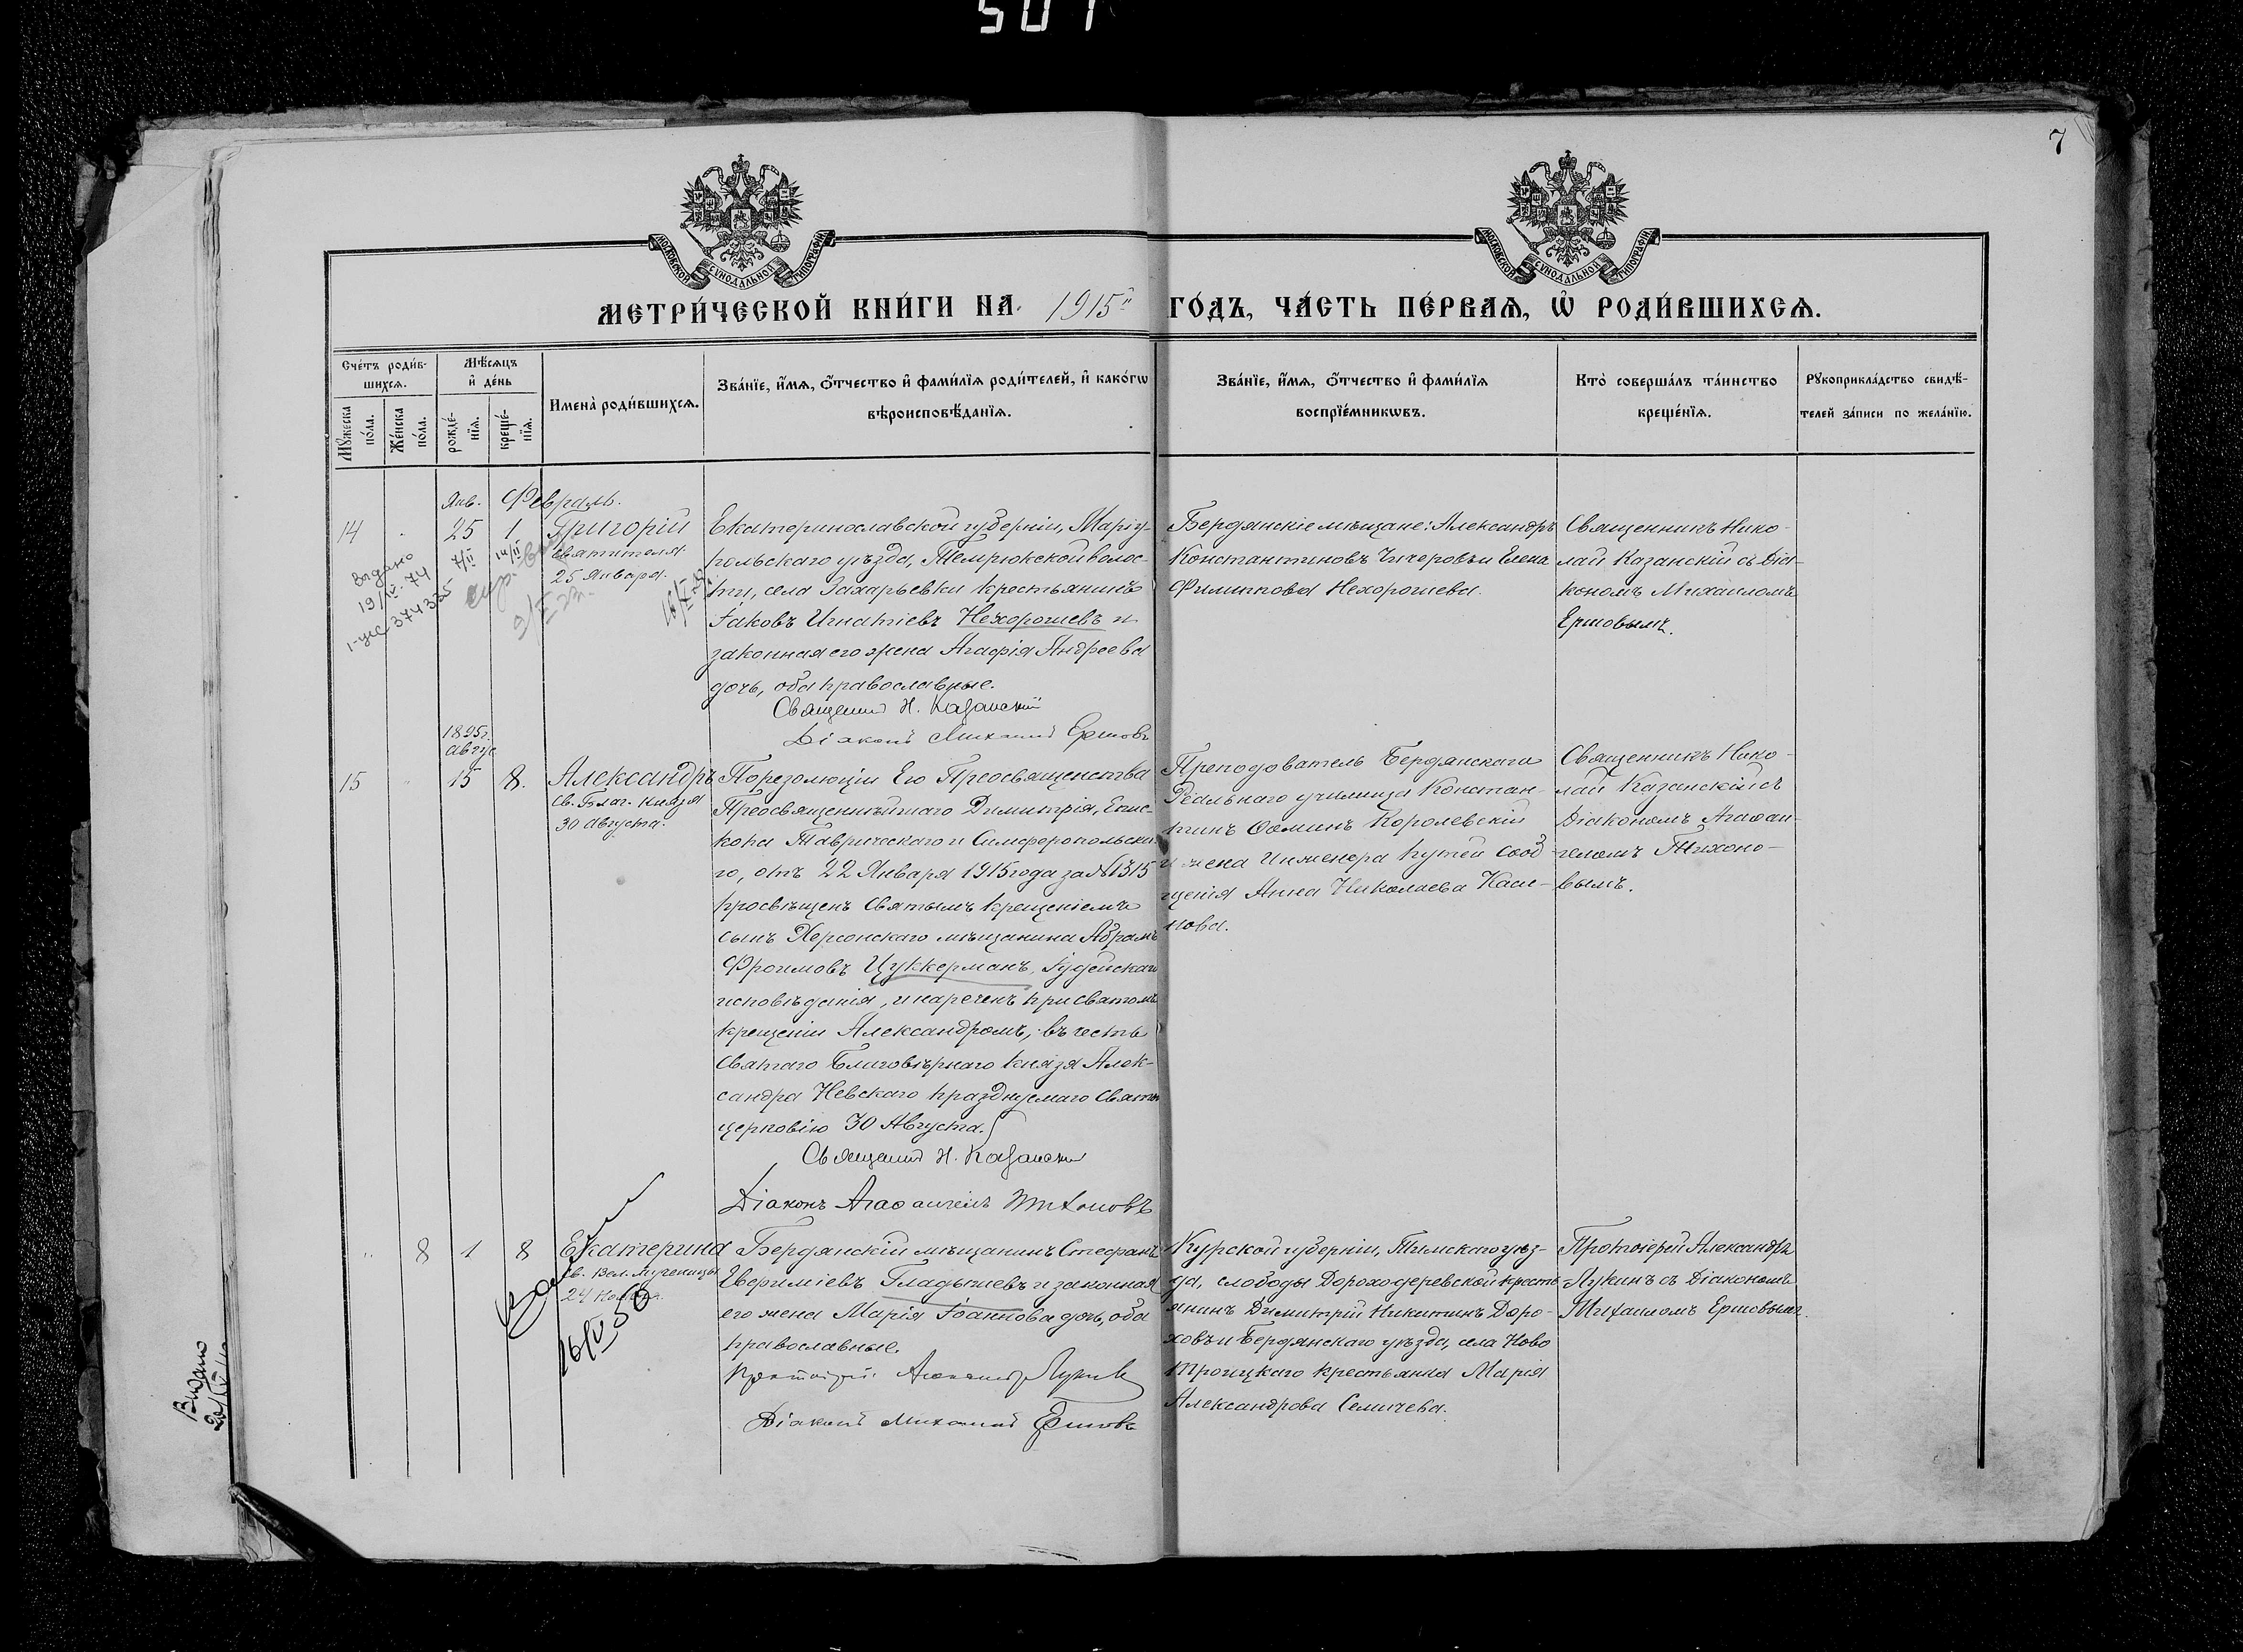 501
7
МОСКОВСКОЙ СѴНОДАЛЬНОЙ ТИПОГРАФІИ
МОСКОВСКОЙ СѴНОДАЛЬНОЙ ТИПОГРАФІИ
МЕТРИ́ЧЕСКОЙ КНИ́ГИ НА 1915й ГО́ДЪ, ЧА́СТЬ ПЕ́РВАѦ, Ѽ РОДИ́ВШИХСѦ.
Сче́тъ роди́в-
шихсѧ.
Мꙋ́жеска
по́ла.
Же́нска
по́ла.
Мѣ́сѧцъ
и҆ де́нь
рожде́-
нїѧ.
креще́-
нїѧ.
И҆мена̀ роди́вшихсѧ.
Зва́нїе, и҆́мѧ, ѻ҆́тчество и҆ фами́лїѧ роди́телей, и҆ како́гѡ
вѣроисповѣ́данїѧ.
Зва́нїе, и҆́мѧ, ѻ҆́тчество и҆ фами́лїѧ
воспрїе́мникѡвъ.
Кто̀ соверша́лъ та́инство
креще́нїѧ.
Рꙋкоприкла́дство свидѣ́-
телей за́писи по жела́нїю.
Янв. Февраль.
14 25 1. Григорій
7/II 14/II
Святителя
25 Января.
Выдано
19/IV-74
374335
Екатеринославской губерніи, Маріу-
польскаго уѣзда, Темрюкской волос-
ти, села Захарьевки крестьянинъ
Іаковъ Игнатіевъ Нехорошевъ и
законная его жена Агафія Андреева
дочь, оба православные.
Священникъ Н. Казанскій
Діаконъ Михаилъ Ершовъ
Бердянскіе мѣщане: Александръ
Константиновъ Чичеровъ и Елена
Филиппова Нехорошева.
Священникъ Нико-
лай Казанскій съ Діа-
кономъ Михаиломъ
Ершовымъ.
1895г.
Авгус
15 15 8. Александръ
Св. Благ. Князя
30 Августа.
По резолюціи Его Преосвященства
Преосвященнѣйшаго Димитрія, Епис-
копа Таврическаго и Симферопольска-
го, отъ 22 Января 1915 года за № 1315
просвѣщенъ Святымъ Крещеніемъ
сынъ Херсонскаго мѣщанина Абрамъ
Фроимовъ Цуккерманъ, Іудейскаго
исповѣданія, и нареченъ при святомъ
крещеніи Александромъ, въ честь
Святаго Благовѣрнаго Князя Алек-
сандра Невскаго празднуемаго Святою
церковію 30 Августа.
Священникъ Н. Казанскій
Діаконъ Агаѳангелъ Тихоновъ
Преподаватель Бердянскаго
Реальнаго училища Констан-
тинъ Ѳоминъ Королевскій
и жена Инженера путей сооб-
щенія Анна Николаева
Священникъ Нико-
лай Казанскій съ
Діакономъ Агаѳан-
геломъ Тихоно-
вымъ.
8 1 8 Екатерина
Св. Вел. Мученицы
24 Ноября.
16/V 50
Бердянскій мѣщанинъ Стефанъ
Евфиміевъ Гладышевъ и законная
его жена Марія Іоаннова дочь, оба
православные.
Протоіерей Александръ Лукинъ
Діаконъ Михаилъ Ершовъ
Курской губерніи, Тимскаго уѣз-
да, слободы Дороходеревской кресть-
янинъ Димитрій Никитинъ Доро-
ховъ и Бердянскаго уѣзда, села Ново
Троицкаго крестьянка Марія
Александрова Семичева.
Протоіерей Александръ
Лукинъ съ Діакономъ
Михаиломъ Ершовымъ.
Видано